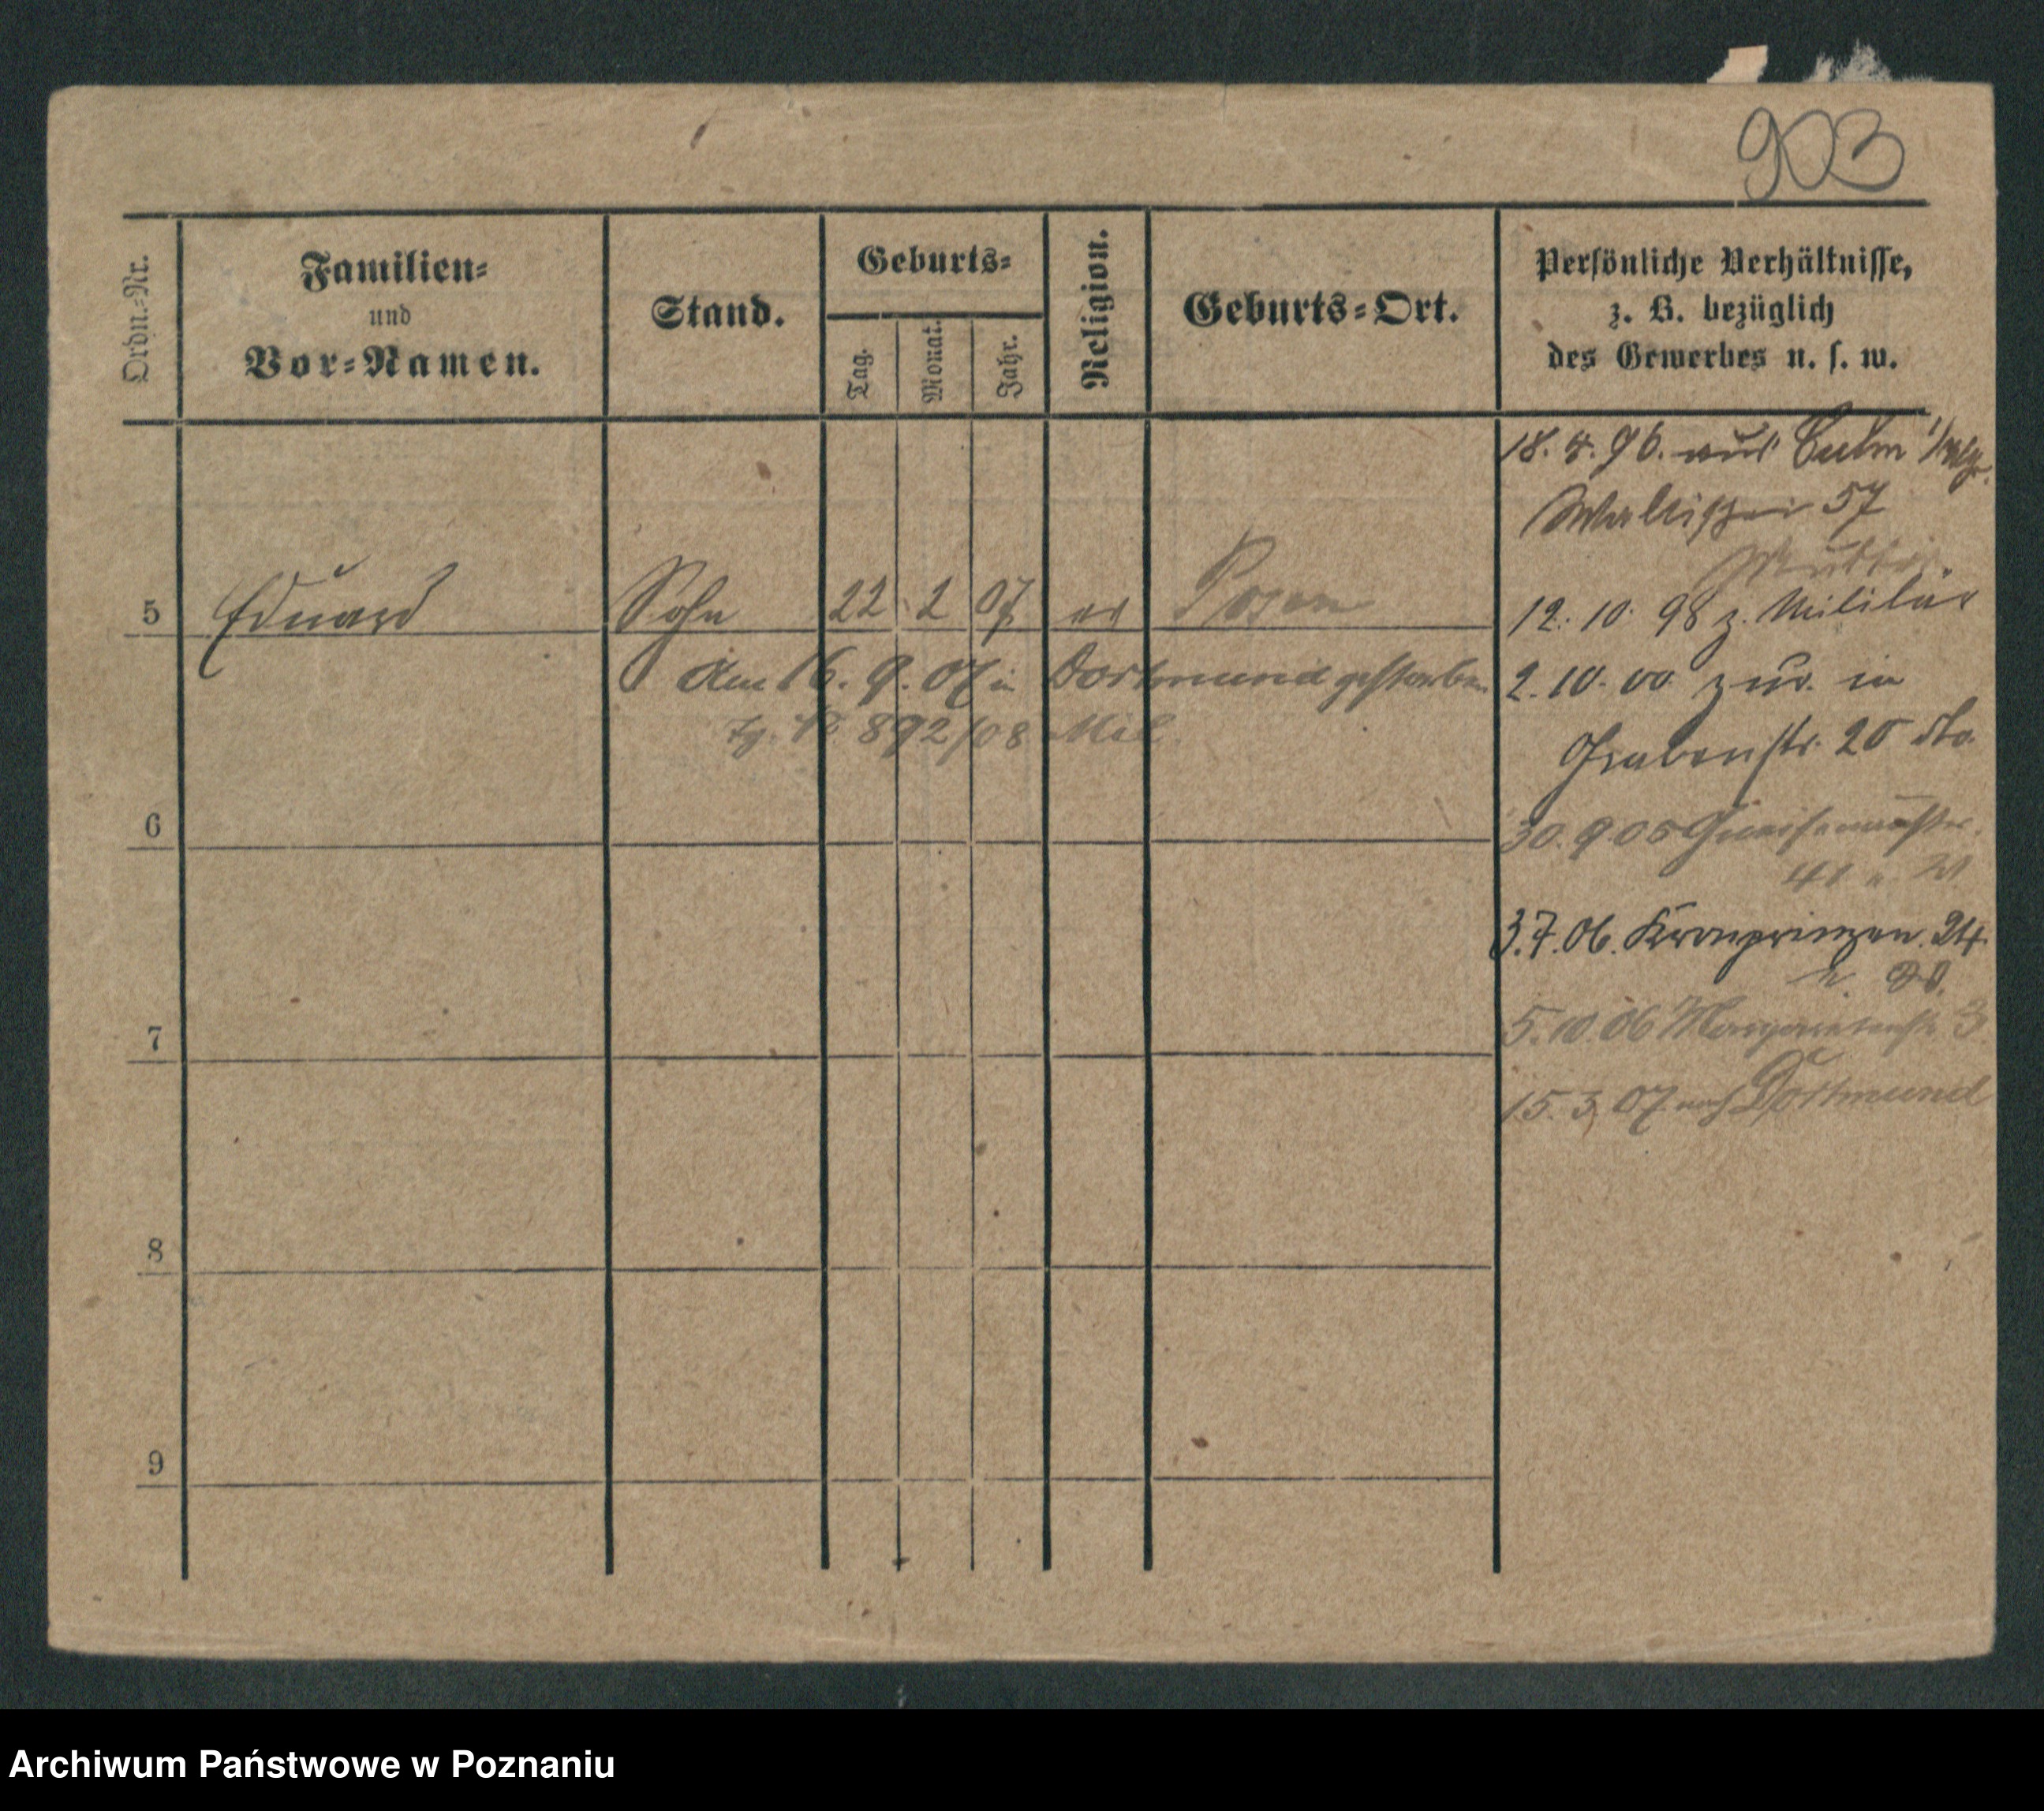 903
Ordn.-Nr.
Familien-
und
Vor-Namen.
Stand.
Geburts-
Tag.
Monat.
Jahr.
Religion.
Geburts-Ort.
Persönliche Verhältnisse,
z. B. bezüglich
des Gewerbes u. s. w.
18. 4. 96. aus Culm
Wallischei 57
Mutter
5 Eduard Sohn 22 2 07 ev Posen
12. 10. 98 z. Militär
Am 16. 9. 07 in Dortmund gestorben
2. 10. 00 zur. in
Tg. 892/08 Mil.
Grabenstr. 20 dto.
6
30. 9 05 Gneisenaustr.
3. 7. 06. Kronprinzen. 24.
7
5. 10. 06 Margaretenstr. 3
15. 3. 07 nach Dortmund
8
9
Archiwum Państwowe w Poznaniu